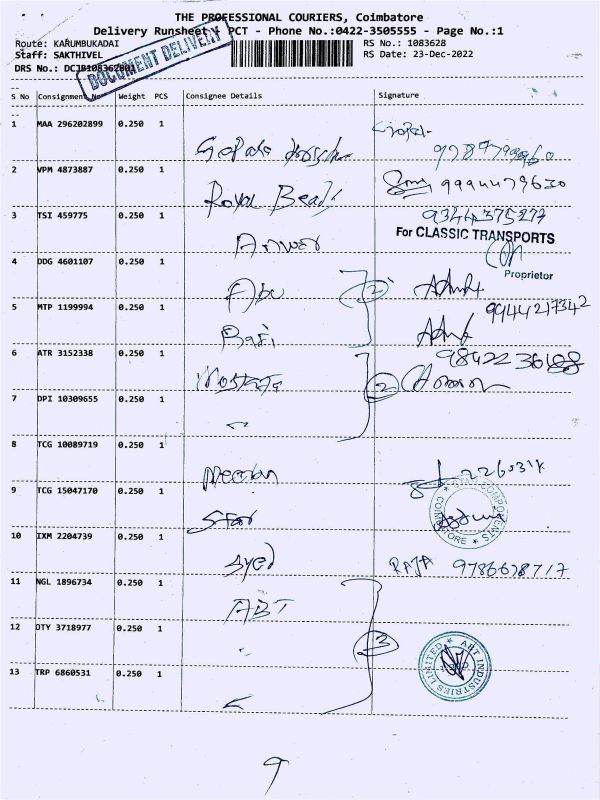 THE PROFESSIONAL COURIERS, Coimbatore
Delivery Runsheet PCT - Phone No.:0422-3505555 - Page No.:1
Route: KARUMBUKADAI RS No.: 1083628
Staff: SAKTHIVEL RS Date: 23-Dec-2022
DRS No.:
DOCUMENT DELIVERY
S No Consignment No Weight PCS Consignee Details Signature
1 MAA 296202899 0.250 1
2 VPM 4873887 0.250 1 Royal Beads 9994479630
3 TSI 459775 0.250 1 Anwer 9344375277
For CLASSIC TRANSPORTS
Proprietor
4 DDG 4601107 0.250 1 Abu 2
5 MTP 1199994 0.250 1 9944217342
6 ATR 3152338 0.250 1 2
7 DPI 10309655 0.250 1
8 TCG 10089719 0.250 1
9 TCG 15047170 0.250 1 Star
COMPONENTS
10 IXM 2204739 0.250 1 Syed RAJA 9786678717
11 NGL 1896734 0.250 1 ABT
12 OTY 3718977 0.250 1 3
ABT INDUSTRIES LIMITED
13 TRP 6860531 0.250 1
9